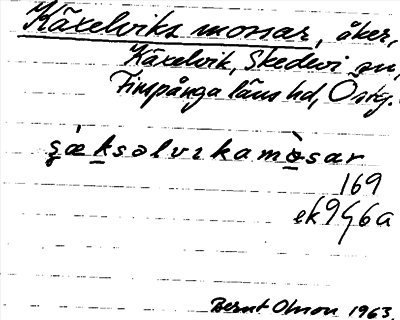 Käxelviks mossar, åker,
Käxelvik, Skedevi sn,
Finspånga läns hd, Östg.
ʂæ̀ksəlvɪkamɔ̀sar
169
ek 9G6a
Bernt Olsson 1963.